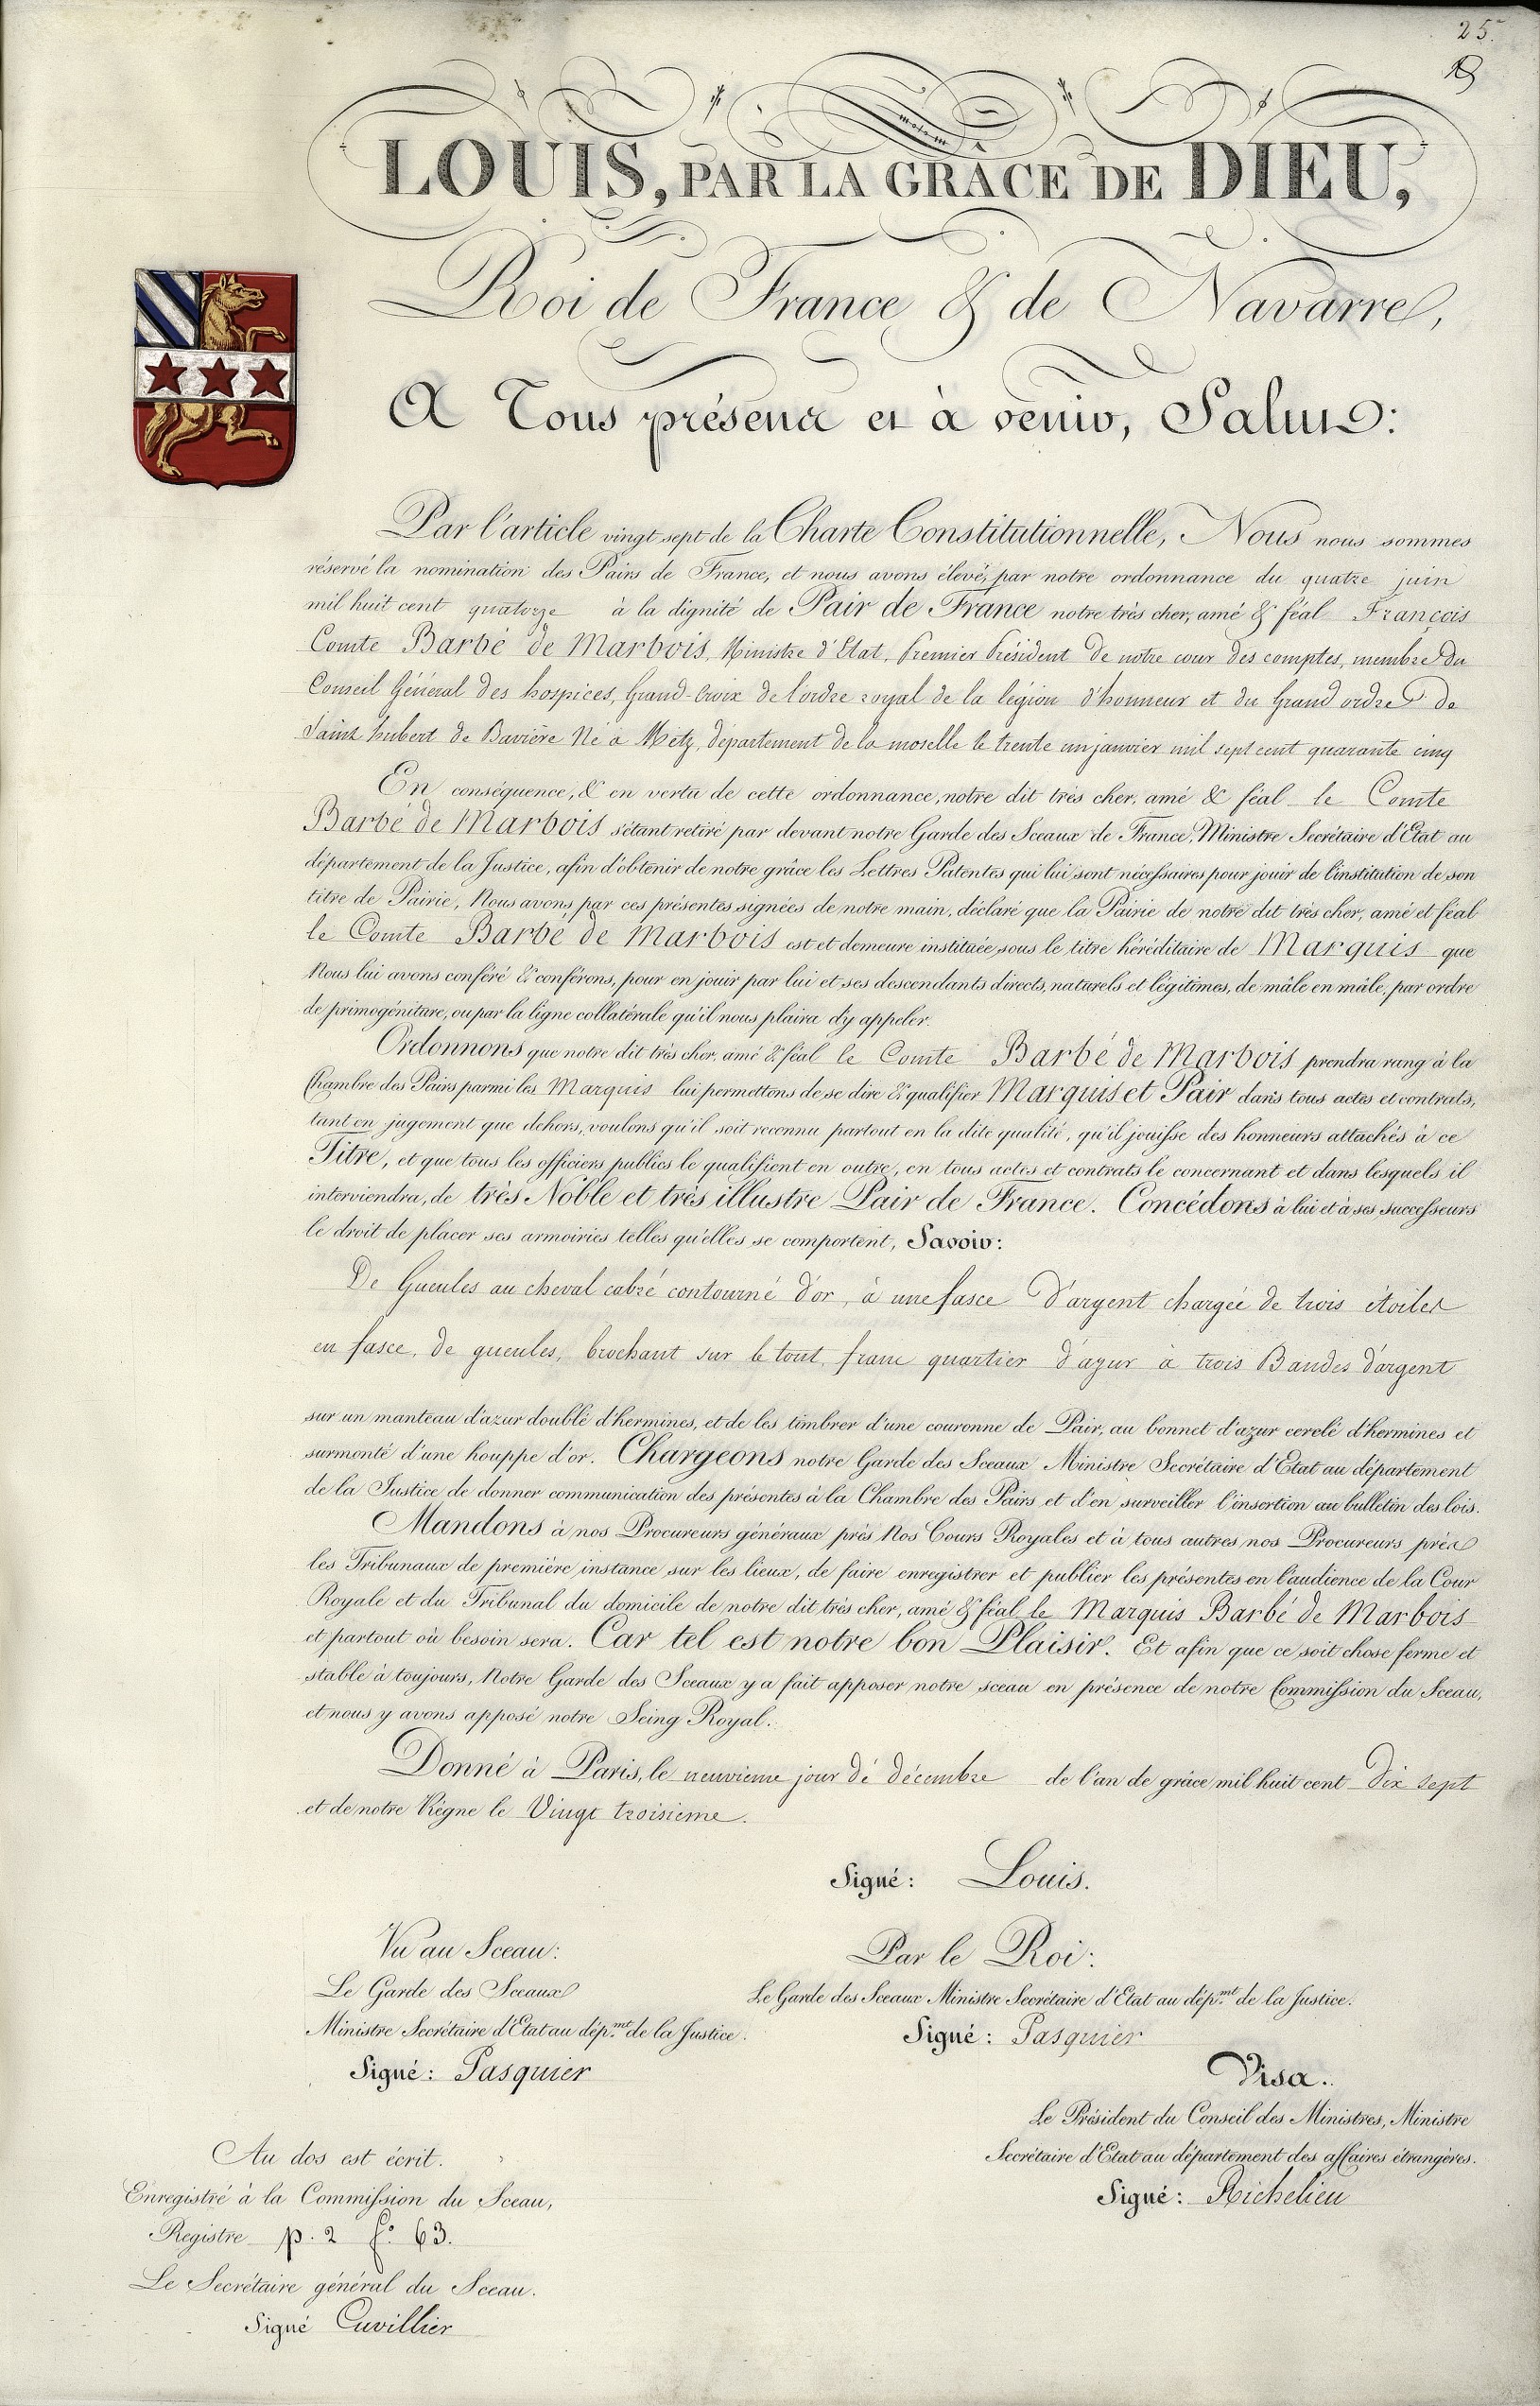 25.
LOUIS, PAR LA GRÂCE DE DIEU,
Roi de France & de Navarre,
A Tous présens et à venir, Salut:
Par l'article vingt sept de la Charte Constitutionnelle, Nous nous sommes
réservé la nomination des Pairs de France, et nous avons élevé, par notre ordonnance du quatre juin
mil huit cent quatorze à la dignité de Pair de France notre très cher, amé & féal François
Comte Barbé de Marbois, Ministre d'Etat, Premier Président de notre cour des comptes, membre du
Conseil Général des hospices, Grand-Croix de l'ordre royal de la légion d'honneur et du Grand ordre de
Saint hubert de Bavière Né à Metz, département de la moselle le trente un janvier mil sept cent quarante cinq
En conséquence, & en vertu de cette ordonnance, notre dit très cher, amé & féal le Comte
Barbé de Marbois s'étant retiré par devant notre Garde des Sceaux de France, Ministre Secrétaire d'Etat au
département de la Justice, afin d'obtenir de notre grâce les Lettres Patentes qui lui sont nécessaires pour jouir de l'institution de son
titre de Pairie, Nous avons par ces présentes signées de notre main, déclaré que la Pairie de notre dit très cher, amé et féal
le Comte Barbé de Marbois est et demeure instituée sous le titre héréditaire de Marquis que
Nous lui avons conféré & conférons, pour en jouir par lui et ses descendants directs, naturels et légitimes, de mâle en mâle, par ordre
de primogéniture, ou par la ligne collatérale qu'il nous plaira d'y appeler.
Ordonnons que notre dit très cher, amé & féal le Comte Barbé de Marbois prendra rang à la
Chambre des Pairs parmi les Marquis lui permettons de se dire & qualifier Marquis et Pair dans tous actes et contrats,
tant en jugement que dehors, voulons qu'il soit reconnu partout en la dite qualité, qu'il jouisse des honneurs attachés à ce
Titre, et que tous les officiers publics le qualifient en outre, en tous actes et contrats le concernant et dans lesquels il
interviendra, de très Noble et très illustre Pair de France. Concédons à lui et à ses successeurs
le droit de placer ses armoiries telles qu'elles se comportent, Savoir:
De Gueules au cheval cabré contourné d'or, à une fasce d'argent chargée de trois étoiles
en fasce, de gueules, brochant sur le tout, franc quartier d'azur à trois Bandes d'argent
sur un manteau d'azur doublé d'hermines, et de les timbrer d'une couronne de Pair, au bonnet d'azur cerclé d'hermines et
surmonté d'une houppe d'or. Chargeons notre Garde des Sceaux Ministre Secrétaire d'Etat au département
de la Justice de donner communication des présentes à la Chambre des Pairs et d'en surveiller l'insertion au bulletin des lois.
Mandons à nos Procureurs généraux près Nos Cours Royales et à tous autres nos Procureurs près
les Tribunaux de première instance sur les lieux, de faire enregistrer et publier les présentes en l'audience de la Cour
Royale et du Tribunal du domicile de notre dit très cher, amé & féal le Marquis Barbé de Marbois
et partout où besoin sera. Car tel est notre bon Plaisir. Et afin que ce soit chose ferme et
stable à toujours, Notre Garde des Sceaux y a fait apposer notre sceau en présence de notre Commission du Sceau,
et nous y avons apposé notre Seing Royal.
Donné à Paris, le neuvieme jour de décembre de l'an de grâce mil huit cent dix sept
et de notre Règne le Vingt troisieme.
Signé: Louis.
Vu au Sceau:
Le Garde des Sceaux
Ministre Secrétaire d'Etat au dép.mt de la Justice.
Signé: Pasquier
Par le Roi:
Le Garde des Sceaux Ministre Secrétaire d'Etat au dép.mt de la Justice.
Signé: Pasquier
Visa.
Le Président du Conseil des Ministres, Ministre
Secrétaire d'Etat au département des affaires étrangères.
Signé: Richelieu
Au dos est écrit.
Enregistré à la Commission du Sceau,
Registre p. 2 f.° 63.
Le Secrétaire général du Sceau.
Signé Cuvillier